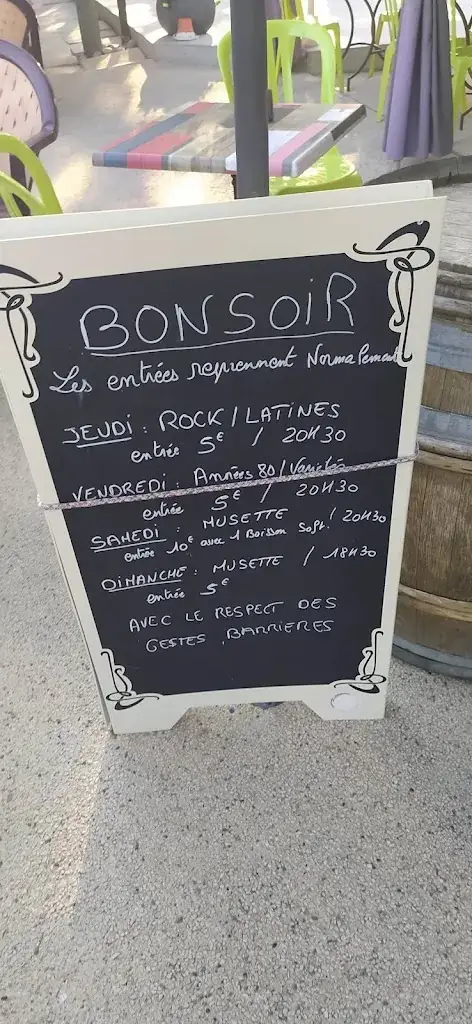 BONSOIR
Les entrées reprennent Normalement
JEUDI : ROCK / LATINES
entrée 5€ / 20H30
VENDREDI : Années 80 / Variétés
entrée 5€ / 20H30
SAMEDI : MUSETTE / 20H30
entrée 10€ avec 1 Boisson Soft!
DIMANCHE : MUSETTE / 18H30
entrée 5€
AVEC LE RESPECT DES
GESTES BARRIERES